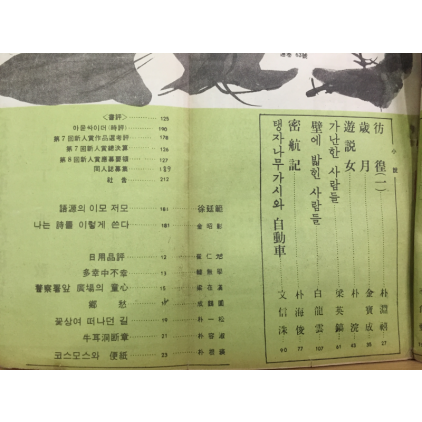 通卷 63號
<書評> 125
아웃싸이더(時評) 190
第7回新人賞作品選考評 178
第7回新人賞總決算 126
第8回新人賞應募要領 127
同人誌募集 189
社告 212
語源의 이모 저모 181 徐廷範
나는 詩를 이렇게 쓴다 101 金昭影
日用品評 12 崔仁旭
多幸中不幸 13
警察署앞 廣場의 童心 15
鄕愁 17
꽃상여 떠나던 길 19 朴一松
牛耳洞斷章 21 朴容淑
코스모스와 便紙 23 朴
小說
彷徨(二) 朴淵 27
歲月 金寶成 38
遊説女 朴 48
가난한 사람들 梁英錦 61
壁에 밟힌 사람들 白龍雲 107
密航記 朴海俊 77
탱자나무가시와 自動車 文信洙 90